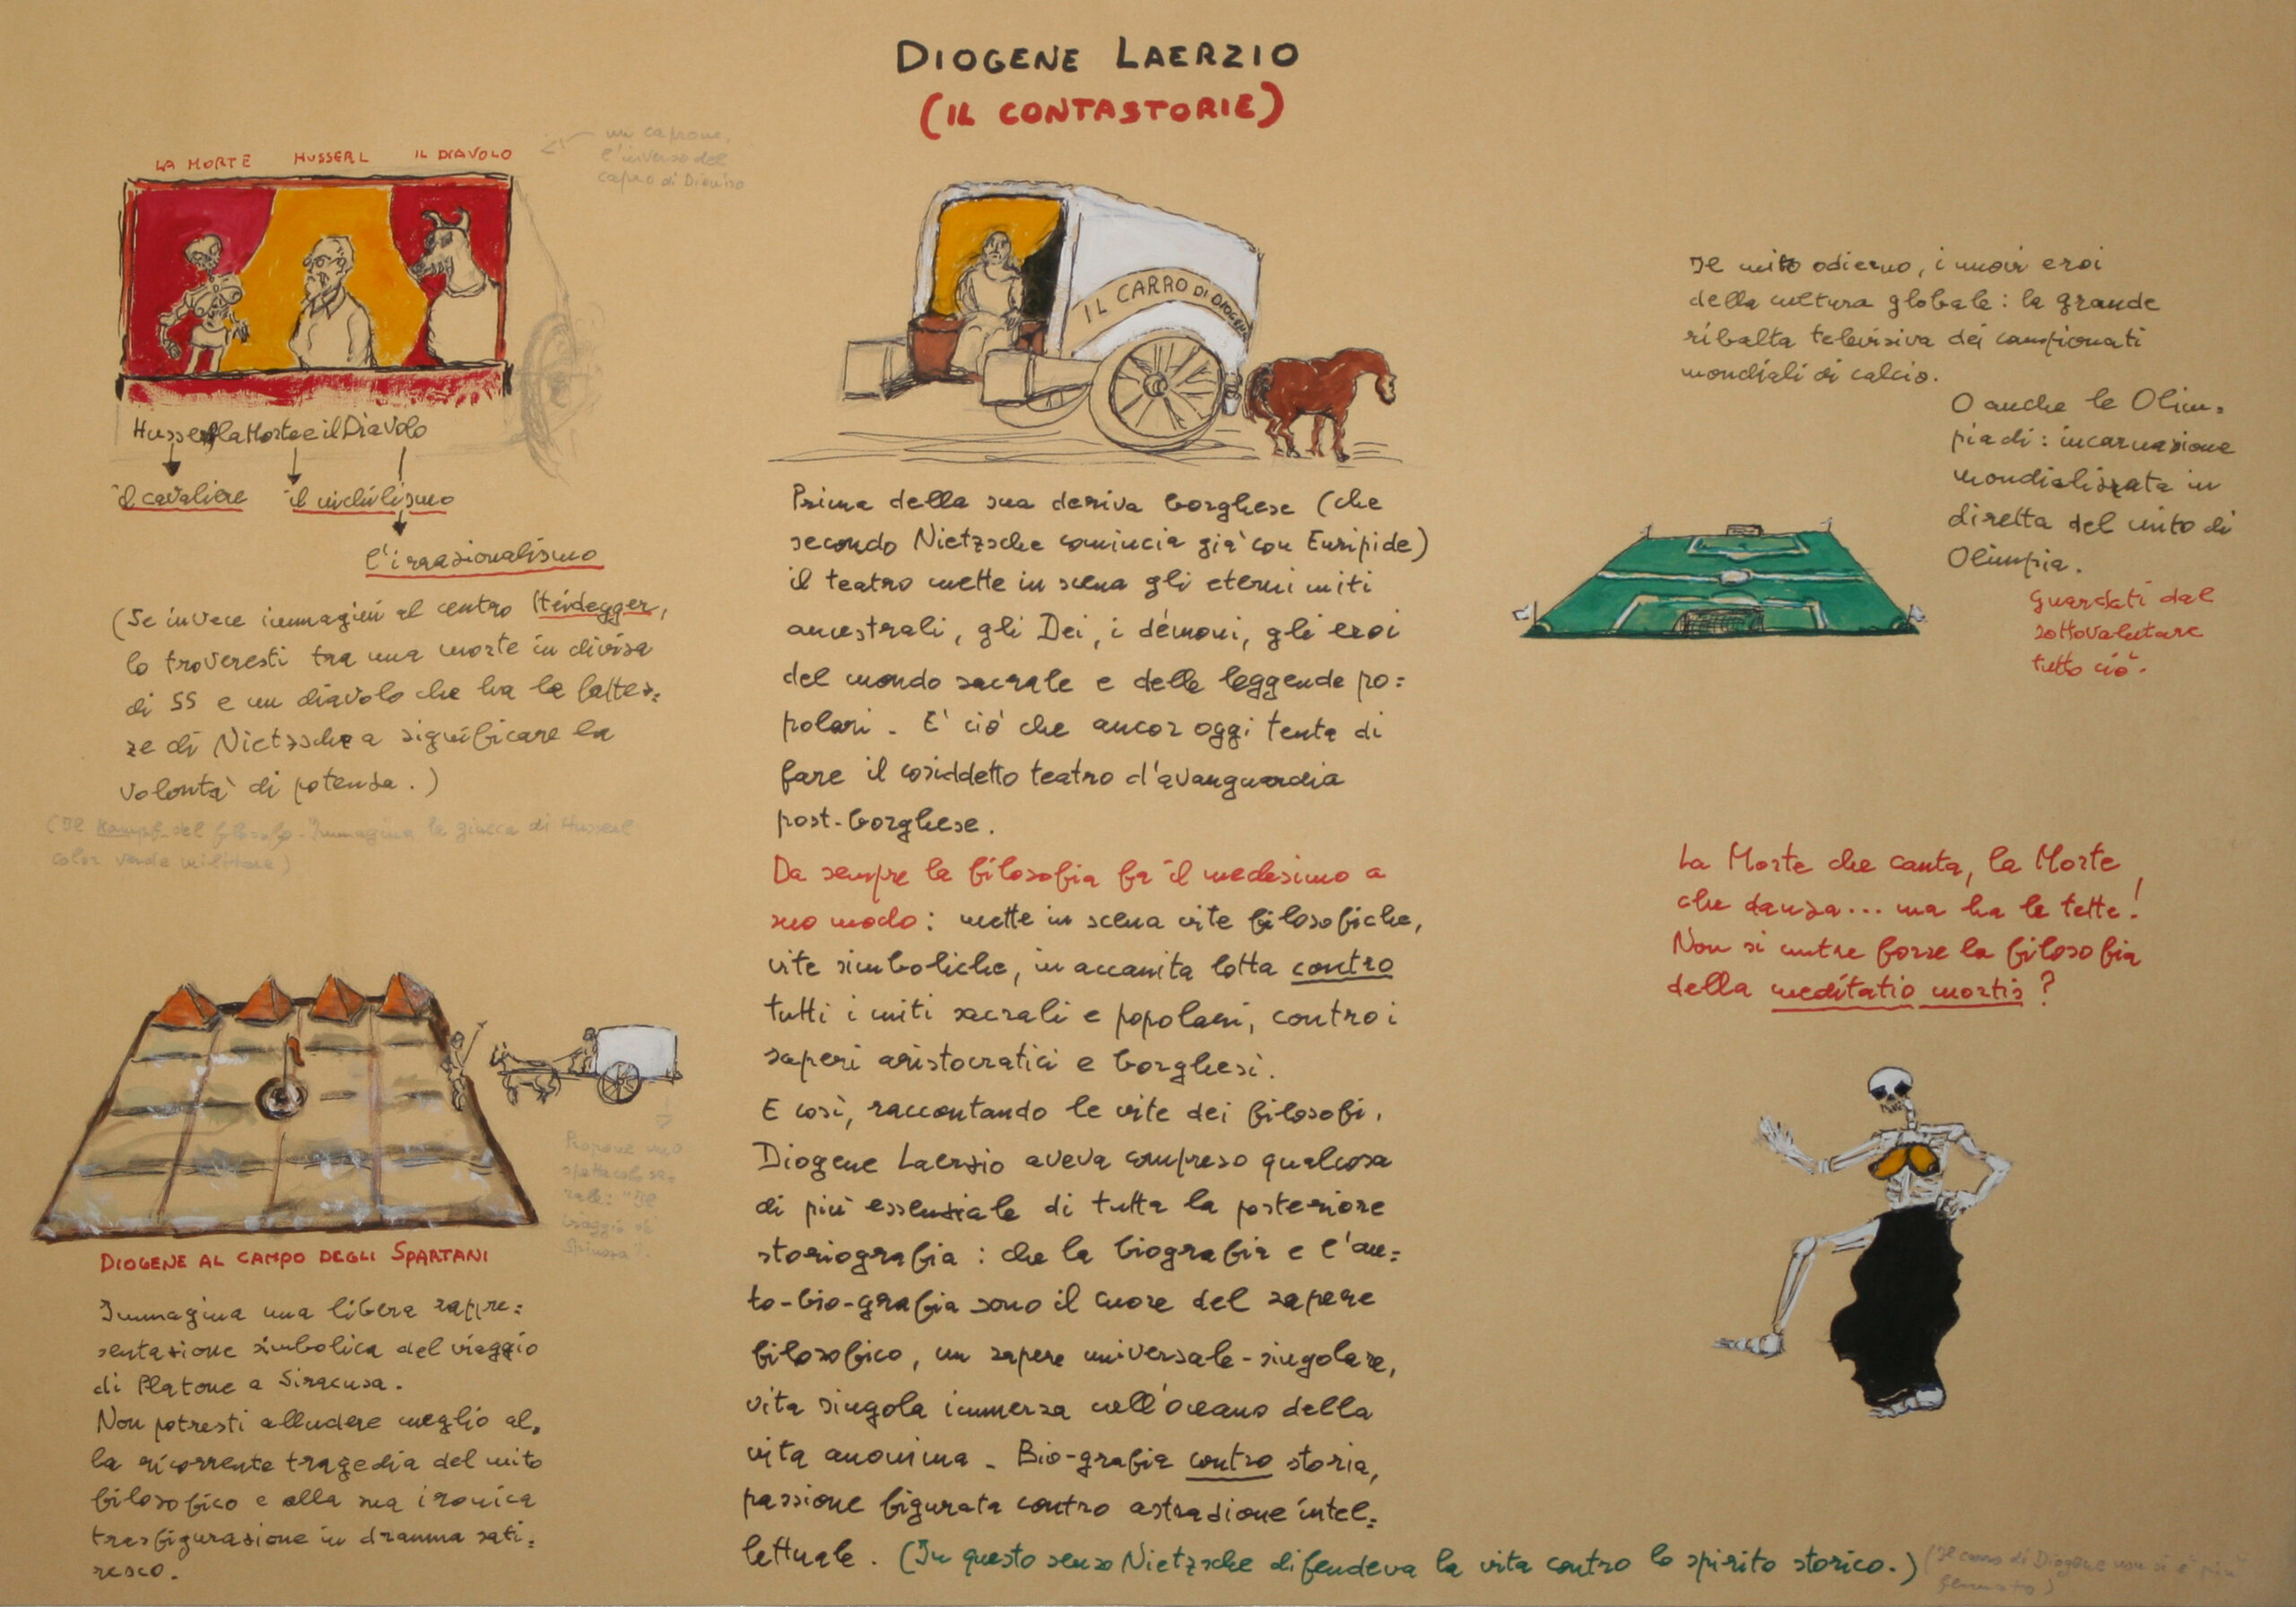 DIOGENE LAERZIO
(IL CONTASTORIE)
LA MORTE HUSSERL IL DIAVOLO
un caprone,
l'inverso del
capro di Dioniso
Husserl la Morte e il Diavolo
il cavaliere il nichilismo
l'irrazionalismo
(Se invece immagini al centro Heidegger,
lo troveresti tra una morte in divisa
di SS e un diavolo che ha le fattez=
ze di Nietzsche a significare la
volontà di potenza.)
(Il Kampf del filosofo. Immagina la giacca di Husserl
color verde militare)
DIOGENE AL CAMPO DEGLI SPARTANI
Propone uno
spettacolo se-
rale: "Il
viaggio di
Spinoza".
Immagina una libera rappre=
sentazione simbolica del viaggio
di Platone a Siracusa.
Non potresti alludere meglio al=
la ricorrente tragedia del mito
filosofico e alla sua ironica
trasfigurazione in dramma sati=
resco.
IL CARRO DI DIOGENE
Prima della sua deriva borghese (che
secondo Nietzsche comincia già con Euripide)
il teatro mette in scena gli eterni miti
ancestrali, gli Dei, i démoni, gli eroi
del mondo sacrale e delle leggende po=
polari. E' ciò che ancor oggi tenta di
fare il cosiddetto teatro d'avanguardia
post-borghese.
Da sempre la filosofia fa il medesimo a
suo modo: mette in scena vite filosofiche,
vite simboliche, in accanita lotta contro
tutti i miti sacrali e popolari, contro i
saperi aristocratici e borghesi.
E così, raccontando le vite dei filosofi,
Diogene Laerzio aveva compreso qualcosa
di più essenziale di tutta la posteriore
storiografia: che la biografia e l'au=
to-bio-grafia sono il cuore del sapere
filosofico, un sapere universale-singolare,
vita singola immersa nell'oceano della
vita anonima. Bio-grafia contro storia,
passione figurata contro astrazione intel=
lettuale. (In questo senso Nietzsche difendeva la vita contro lo spirito storico.)
(Il carro di Diogene non si è più
fermato)
Il mito odierno, i nuovi eroi
della cultura globale: la grande
ribalta televisiva dei campionati
mondiali di calcio.
O anche le Olim=
piadi: incarnazione
mondializzata in
diretta del mito di
Olimpia.
Guardati dal
sottovalutare
tutto ciò.
La Morte che canta, la Morte
che danza... ma ha le tette!
Non si nutre forse la filosofia
della meditatio mortis?